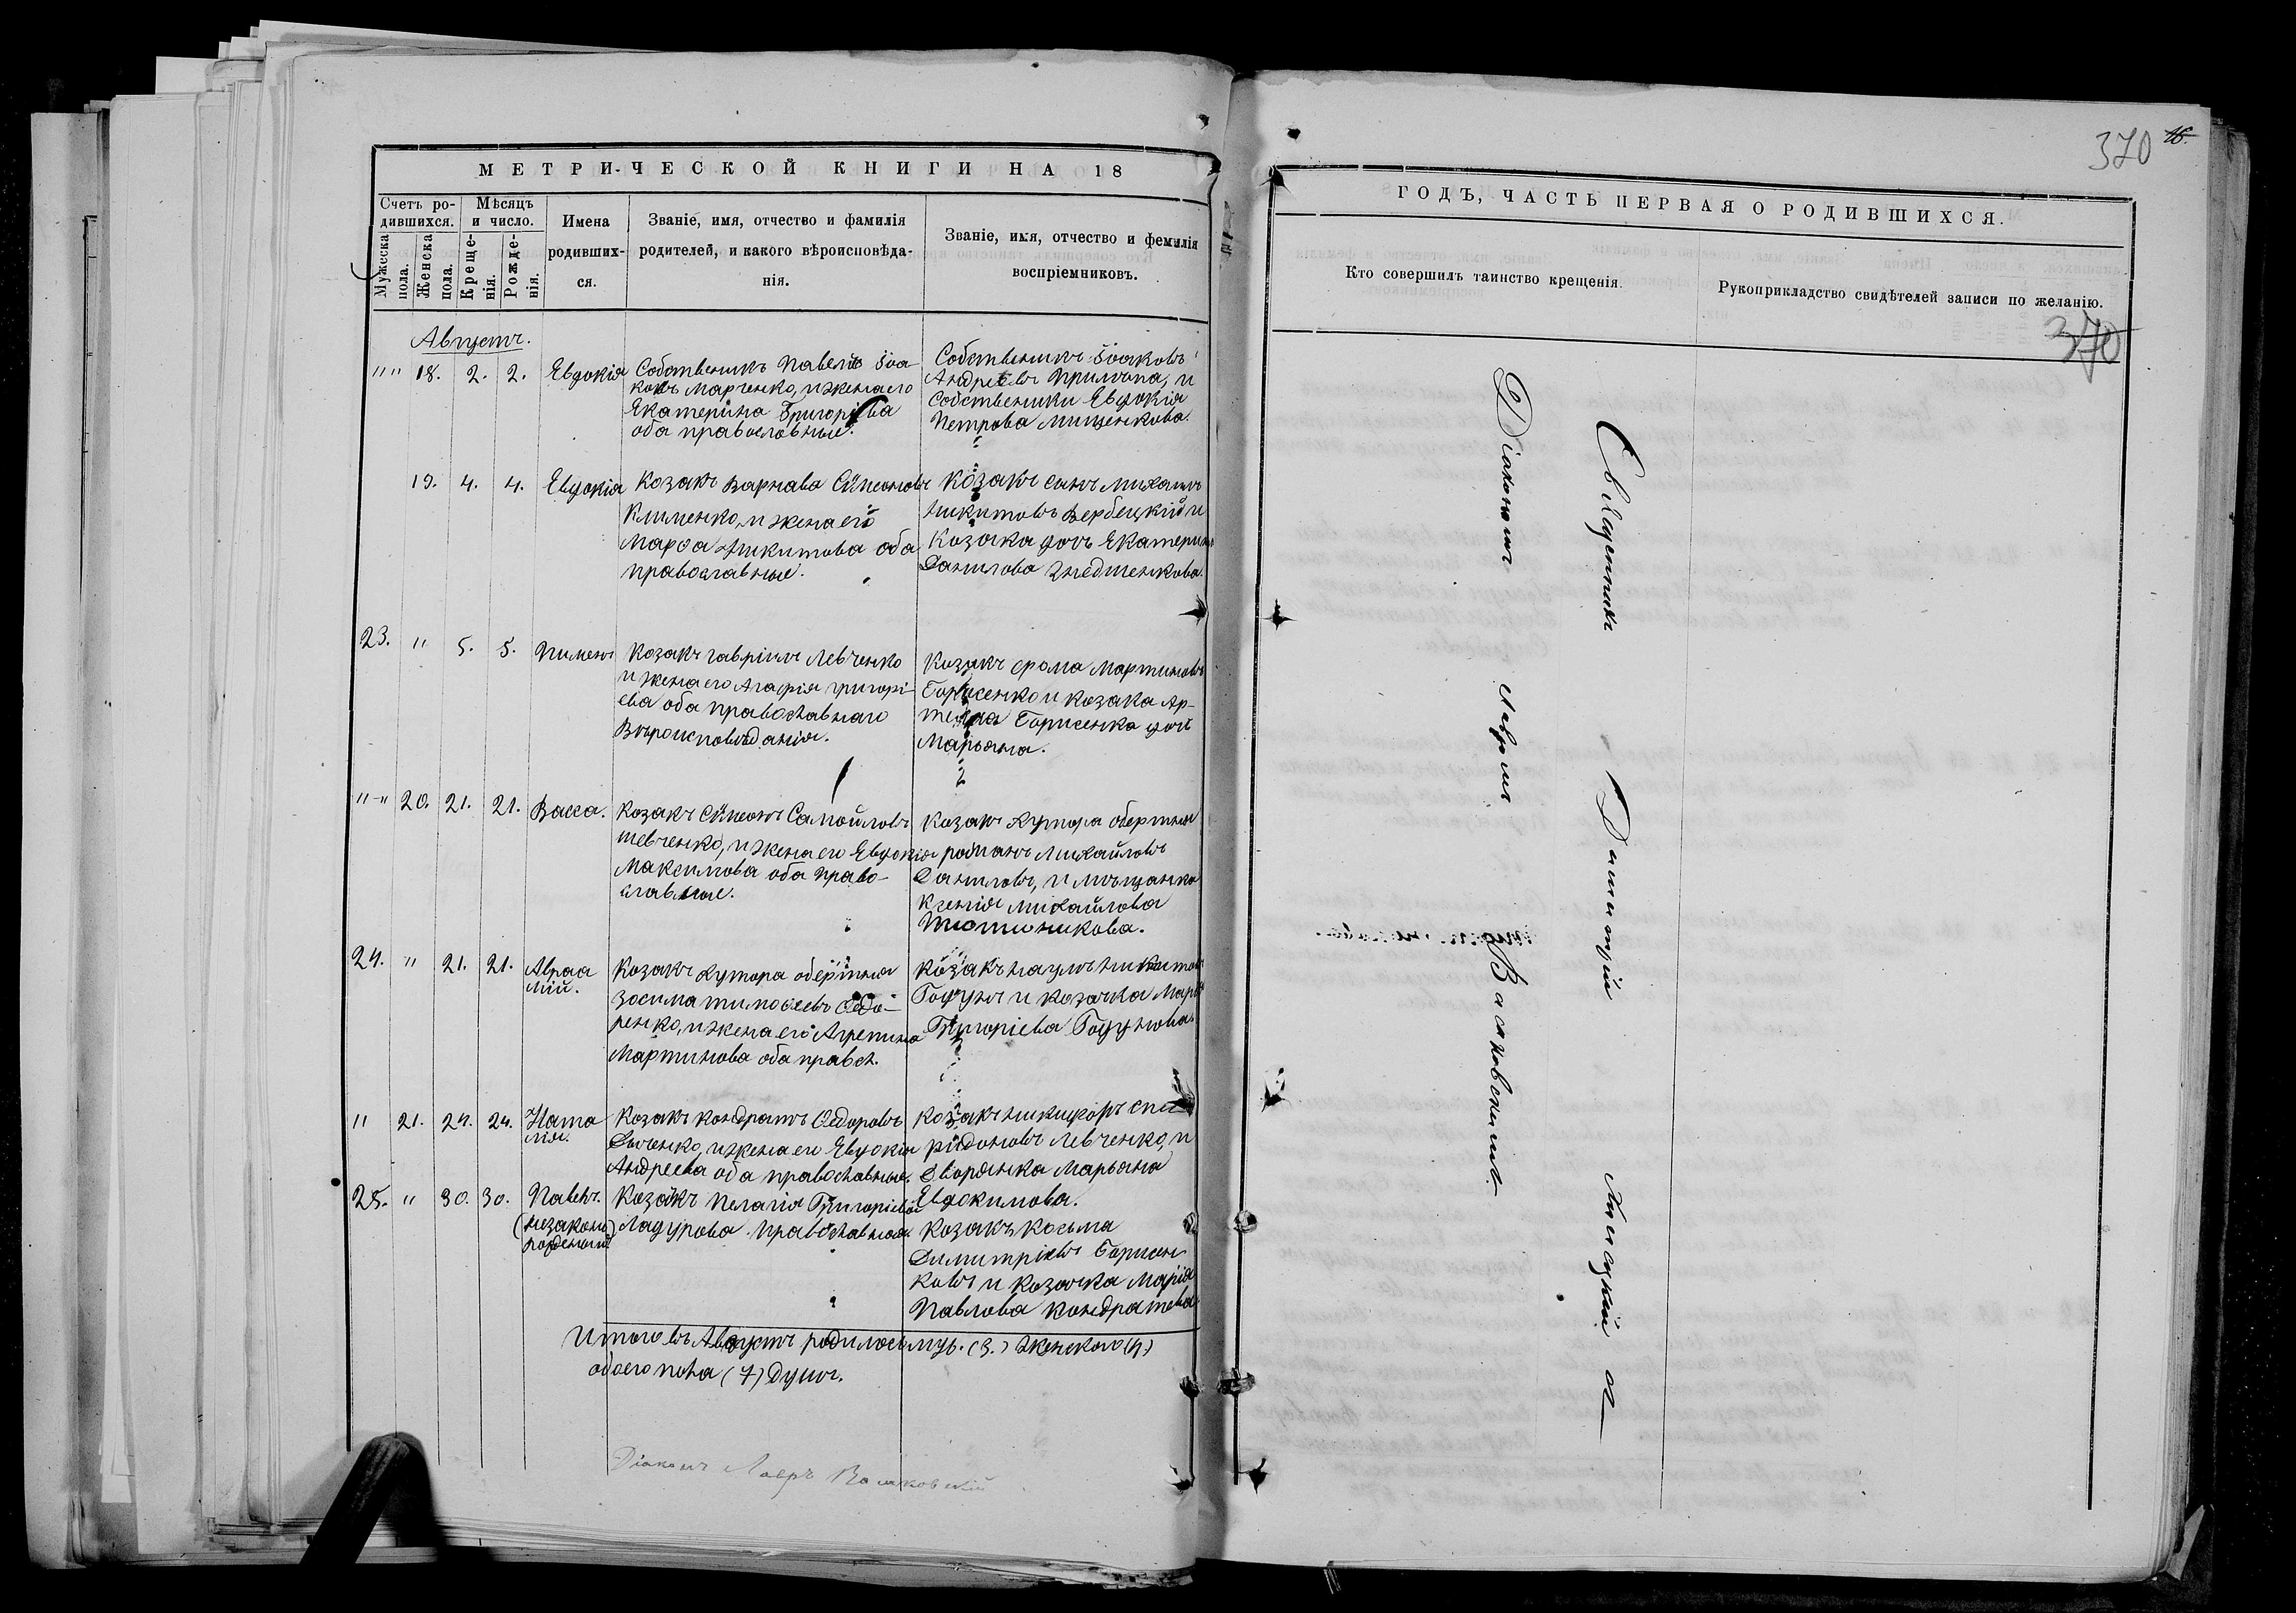 МЕТРИЧЕСКОЙ КНИГИ НА 18
Счетъ ро-
дившихся.
Мужеска
пола.
Женска
пола.
Мѣсяцъ
и число.
Креще-
нія.
Рожде-
нія.
Имена
родивших-
ся.
Званіе, имя, отчество и фамилія
родителей, и какого вѣроисповѣда-
нія.
Званіе, имя, отчество и фемилія
воспріемниковъ.
Августъ.
"" 18. 2. 2. Евдокія
Собственикъ Павелъ Іоа
ковъ Марченко, и жена его
Екатерина Григоріева
оба православные.
Собственикъ Іоаковъ
Андреевъ Прилипа, и
Собственики Евдокія
Петрова Мищенкова.
19. 4. 4. Евдокія
Козакъ Варнава Сѵмеоновъ
Клименко, и жена его
Марѳа Никитова оба
православные.
Козакъ сынъ Михаилъ
Никитовъ Вербецкій и
Козака дочь Екатерина
Данилова
23. " 5. 5. Пименъ
Козакъ Гавріилъ Левченко
и жена его Агафія Григорі-
ева оба православнаго
Вѣроисповѣданія.
Козакъ Фома Мартиновъ
Борисенко и козака Ар-
тема Борисенка дочь
Марьяна.
"-" 20. 21. 21. Васса.
Козакъ Сѵмеонъ Самойловъ
Шевченко, и жена его Евдокія
Максимова оба право-
славные.
Козакъ Хутора
Романъ Михайловъ
Даниловъ, и мѣщанка
Ксенія Михайлова
24. " 21. 21. Авраа
мій.
Козакъ Хутора
Зосима Тимоѳеевъ Ѳедо-
ренко, и жена его Агрепина
Мартинова оба правсл.
Козакъ Наумъ Никитовъ
Годунъ и козачка Марія
Григоріева Годунова.
" 21. 24. 24. Ната
лія.
Козакъ Кондратъ Ѳедоровъ
Дяченко, и жена его Евдокія
Андреева оба православные.
Козакъ Никифоръ Спи
ридоновъ Левченко, и
Дворянка Марьяна
Евдокимова.
25. " 30. 30. Павелъ.
(незаконо)
рожденный
Козачкъ Пелагія Григоріева
Ладурова православная.
Козакъ Косьма
Димитріевъ Борисен
ковъ и козачка Марія
Павлова Кондратева
Итого въ Августѣ родилось муж. (3.) Женскаго (4)
обоего пола (7) Душъ.
Діаконъ Лавръ Васьковскій
370 16.
ГОДЪ, ЧАСТЬ ПЕРВАЯ О РОДИВШИХСЯ.
Кто совершилъ таинство крещенія.
Рукоприкладство свидѣтелей записи по желанію.
370
Священникъ Димитрій съ
Діакономъ Лавромъ Васьковскимъ